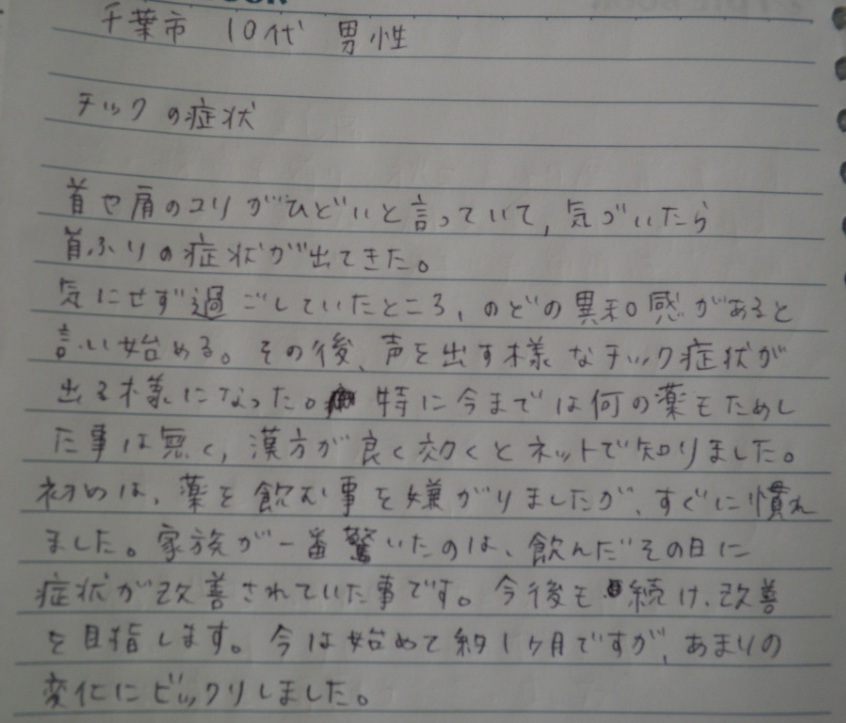 千葉市 10代 男性
チックの症状
首や肩のコリがひどいと言っていて、気づいたら
首ふりの症状が出てきた。
気にせず過ごしていたところ、のどの異和感があると
言い始める。その後、声を出す様なチック症状が
出る様になった。特に今までは何の薬もためし
た事は無く、漢方が良く効くとネットで知りました。
初めは、薬を飲む事を嫌がりましたが、すぐに慣れ
ました。家族が一番驚いたのは、飲んだその日に
症状が改善されていた事です。今後も続け、改善
を目指します。今は始めて約1ヶ月ですが、あまりの
変化にビックリしました。